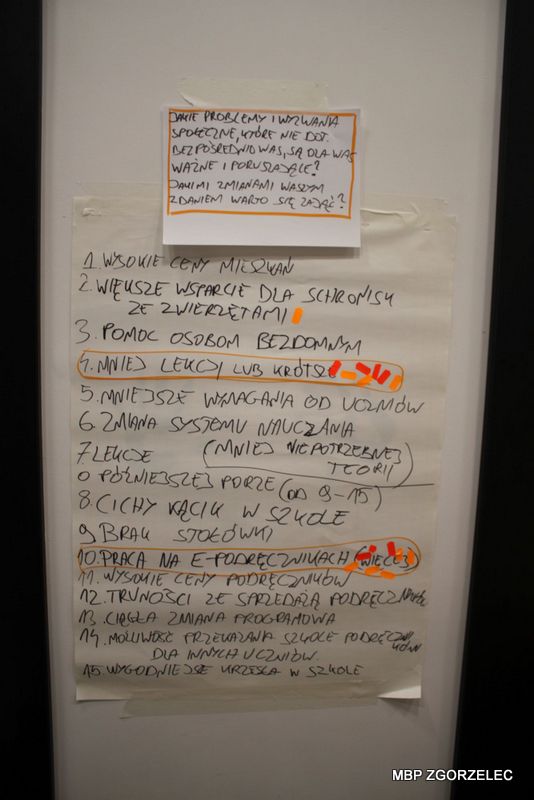 JAKIE PROBLEMY I WYZWANIA
SPOŁECZNE, KTÓRE NIE DOT.
BEZPOŚREDNIO WAS, SĄ DLA WAS
WAŻNE I PORUSZAJĄCE?
JAKIMI ZMIANAMI WASZYM
ZDANIEM WARTO SIĘ ZAJĄĆ?
1. WYSOKIE CENY MIESZKAŃ
2. WIĘKSZE WSPARCIE DLA SCHRONISK
ZE ZWIERZĘTAMI
3. POMOC OSOBOM BEZDOMNYM
4. MNIEJ LEKCJI LUB KRÓTSZE
5. MNIEJSZE WYMAGANIA OD UCZNIÓW
6. ZMIANA SYSTEMU NAUCZANIA
(MNIEJ NIEPOTRZEBNEJ
TEORII)
7. LEKCJE
O PÓŹNIEJSZEJ PORZE (OD 9-15)
8. CICHY KĄCIK W SZKOLE
9. BRAK STOŁÓWKI
10. PRACA NA E-PODRĘCZNIKACH (WIĘCEJ)
11. WYSOKIE CENY PODRĘCZNIKÓW
12. TRUNOŚCI ZE SPRZEDAŻĄ PODRĘCZNIKÓW
13. CIĄGŁA ZMIANA PROGRAMOWA
14. MOŻLIWOŚĆ PRZEKAZANIA SZKOLE PODRĘCZNIKÓW
DLA INNYCH UCZNIÓW
15. WYGODNIEJSZE KRZESŁA W SZKOLE
MBP ZGORZELEC